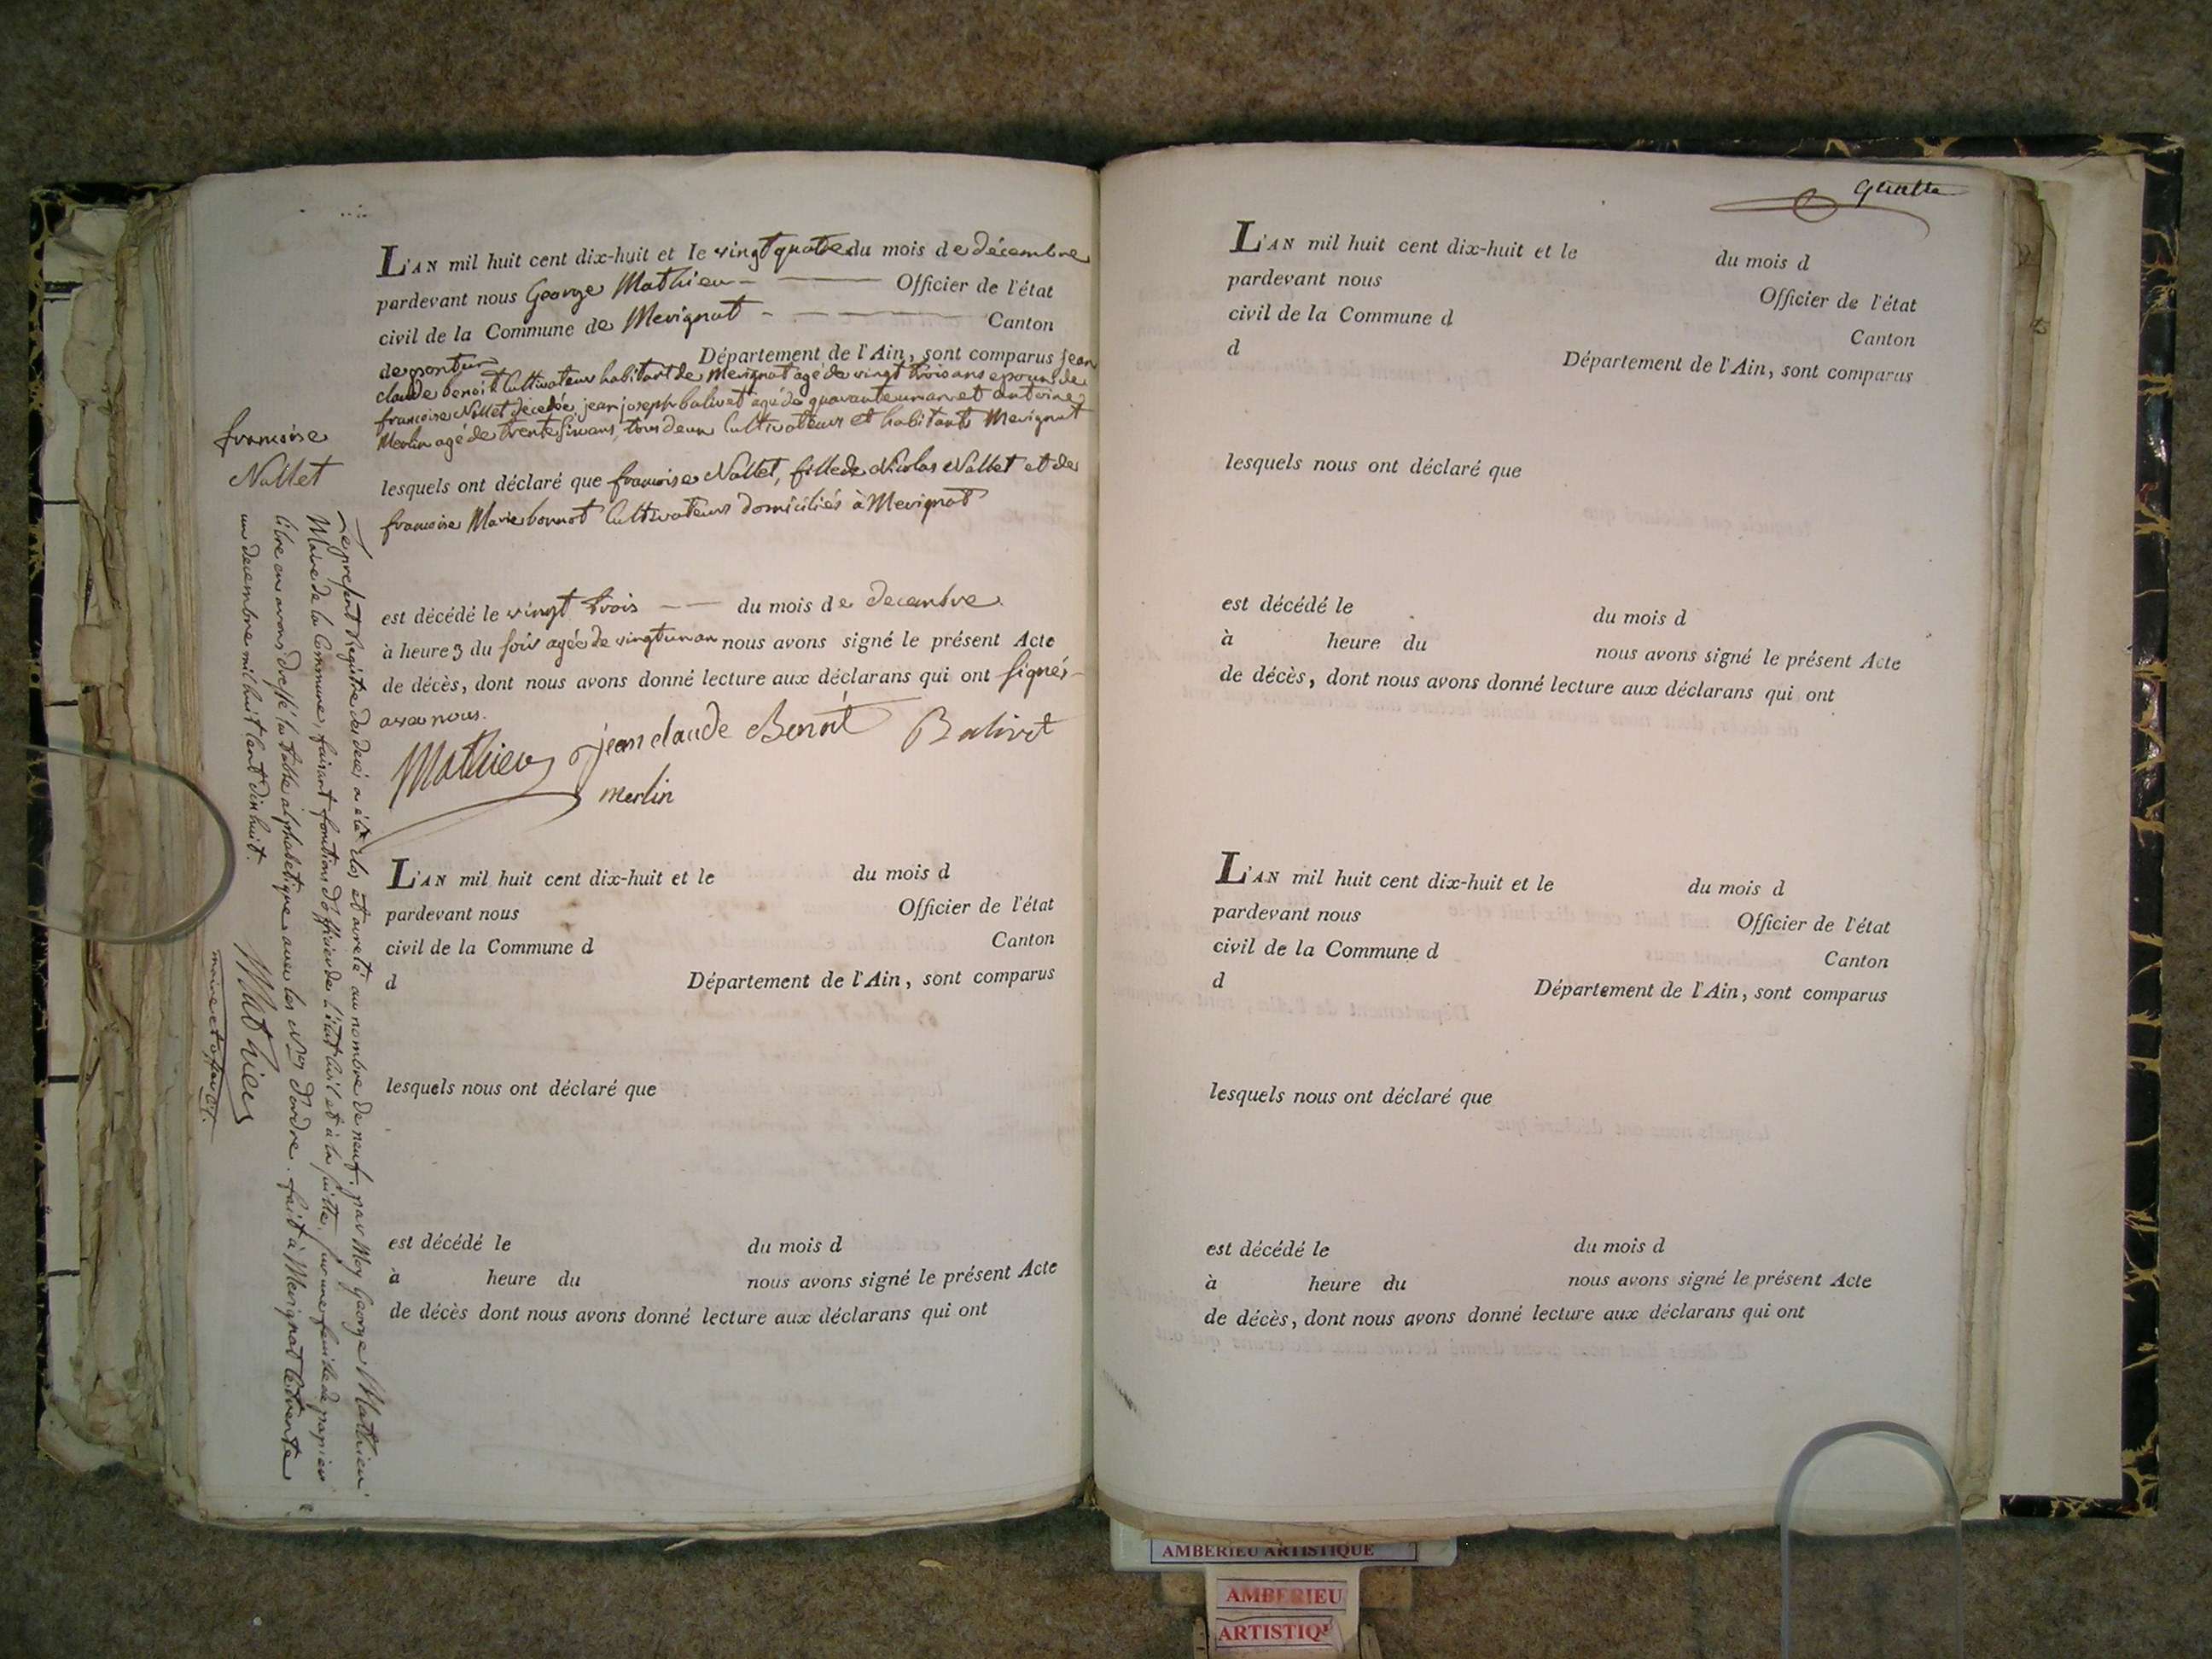 françoise
Nallet
L'AN mil huit cent dix-huit et le vingt quatre du mois de décembre
pardevant nous George Mathieu Officier de l'état
civil de la Commune de Mevignat Canton
de pontux Département de l'Ain, sont comparus jean
claude benoit Cultivateur habitant de Mevignat agé de vingt trois ans epoux de
francoise Nallet décedée, jean joseph balivet agé de quarante un an et antoine
Merlin agé de trente six ans, tous deux Cultivateurs et habitants Mevignat
lesquels ont déclaré que francoise Nallet, fille de Nicolas Nallet et de
francoise Marie bonnot Cultivateurs domiciliés à Mevignat
est décédé le vingt trois du mois de decembre
à heure 3 du soir agée de vingt un an nous avons signé le présent Acte
de décès, dont nous avons donné lecture aux déclarans qui ont signés
avec nous.
Mathieu jean claude Benoit Balivet
merlin
Le present Registre des deces a été clos et arreté au nombre de neuf, par Moy George Mathieu
Maire de la Commune, faisant fontions d'officier de l'état Civil et à la suitte, sur une feuille de papier
libre en avons dressé la table alphabetique avec les Nos d'ordre. fait à Mevignat le trente
un decembre mil huit cent dix huit.
Mathieu
maire et
L'AN mil huit cent dix-huit et le du mois d
pardevant nous Officier de l'état
civil de la Commune d Canton
d Département de l'Ain, sont comparus
lesquels nous ont déclaré que
est décédé le du mois d
à heure du nous avons signé le présent Acte
de décès dont nous avons donné lecture aux déclarans qui ont
L'AN mil huit cent dix-huit et le du mois d
pardevant nous Officier de l'état
civil de la Commune d Canton
d Département de l'Ain, sont comparus
lesquels nous ont déclaré que
est décédé le du mois d
à heure du nous avons signé le présent Acte
de décès, dont nous avons donné lecture aux déclarans qui ont
L'AN mil huit cent dix-huit et le du mois d
pardevant nous Officier de l'état
civil de la Commune d Canton
d Département de l'Ain, sont comparus
lesquels nous ont déclaré que
est décédé le du mois d
à heure du nous avons signé le présent Acte
de décès, dont nous avons donné lecture aux déclarans qui ont
AMBERIEU ARTISTIQUE
AMBERIEU
ARTISTIQU